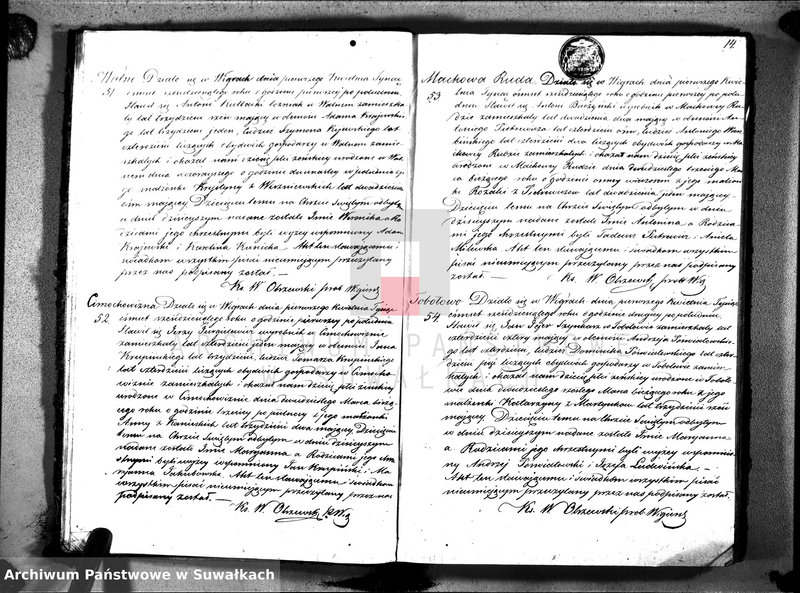 14
Walne Działo się w Wigrach dnia pierwszego Kwietnia Tysiąc
51 ośmset sześćdziesiątego roku o godzinie pierwszej po południu
Stawił się Antoni
ty lat trzydzieści mający w obecności Adama
go lat trzydzieści jeden, tudzież Szymona lat
czterdzieści liczących obydwóch gospodarzy w Walnem zamie-
szkałych i okazał nam dziecię płci żeńskiej urodzone w Wal-
nem dnia wczorajszego o godzinie dwunastej w południe z je-
go małżonki Krystyny z lat dwadzieścia
ośm mającej. Dziecięciu temu na Chrzcie Świętym odbytym
w dniu dzisiejszym nadane zostało Imię Weronika a Ro-
dzicami jego chrzestnymi byli wyżej wspomniony Adam
Krajewski i Karolina Akt ten stawającemu i
świadkom wszystkim pisać nieumiejącym przeczytany
przez nas podpisany został. —
Ks. W Obszewski prob Wigiersk
Cimochowizna Działo się w Wigrach dnia pierwszego Kwietnia Tysiąc
52 ośmset sześćdziesiątego roku o godzinie pierwszej po południu
Stawił się Jerzy wyrobnik w Cimochowiznie
zamieszkały lat czterdzieści jeden mający w obecności Jana
Krupińskiego lat trzydzieści, tudzież Tomasza Krupińskiego
lat czterdzieści liczących obydwóch gospodarzy w Cimocho-
wiznie zamieszkałych i okazał nam dziecię płci żeńskiej
urodzone w Cimochowiznie dnia dwudziestego Marca bieżą-
cego roku o godzinie trzeciej po północy z jego małżonki
Anny z lat trzydzieści dwa mającej. Dziecięciu
temu na Chrzcie Świętym odbytym w dniu dzisiejszym
nadane zostało Imię Maryanna a Rodzicami jego chrze-
stnymi byli wyżej wspomniony Jan Karpiński i Ma-
ryanna Jakubowska. Akt ten stawającemu i świadkom
wszystkim pisać nieumiejącym przeczytany przez nas
podpisany został. —
Ks. W Obszewski
Maćkowa Ruda. Działo się w Wigrach dnia pierwszego Kwie-
53 tnia Tysiąc ośmset sześćdziesiątego roku o godzinie pierwszej po połu-
dniu Stawił się Antoni wyrobnik w Maćkowej Ru-
dzie zamieszkały lat dwadzieścia dwa mający w obecności An-
toniego lat czterdzieści ośm, tudzież Antoniego
lat czterdzieści dwa liczących obydwóch gospodarzy w Ma-
ćkowej Rudzie zamieszkałych i okazał nam dziecię płci żeńskiej
urodzone w Maćkowej Rudzie dnia dwudziestego trzeciego Mar-
ca bieżącego roku o godzinie ósmej wieczorem z jego małżon-
ki Rozalii z lat dwadzieścia jeden mającej.
Dziecięciu temu na Chrzcie Świętym odbytym w dniu
dzisiejszym nadane zostało Imię Antonina a Rodzica-
mi jego chrzestnymi byli Tadeusz i Aniela
Milewska Akt ten stawającemu i świadkom wszystkim
pisać nieumiejącym przeczytany przez nas podpisany
został. — Ks. W. Obszewski prob Wig
Tobołowo Działo się w Wigrach dnia pierwszego Kwietnia Tysiąc
54 ośmset sześćdziesiątego roku o godzinie drugiej po południu.
Stawił się Jan w Tobołowie zamieszkały lat
czterdzieści cztery mający w obecności Andrzeja
go lat czterdzieści, tudzież Dominika lat czter-
dzieści pięć liczących obydwóch gospodarzy w Tobołowie zamie-
szkałych i okazał nam dziecię płci żeńskiej urodzone w Toboło-
wie dnia dwudziestego szóstego Marca bieżącego roku z jego
małżonki Katarzyny z lat trzydzieści sześć
mającej. Dziecięciu temu na Chrzcie Świętym odbytym
w dniu dzisiejszym nadane zostało Imię Maryanna
a Rodzicami jego chrzestnymi byli wyżej wspomnio-
ny Andrzej i Józefa Ludwińska. —
Akt ten stawającemu i świadkom wszystkim pisać
nieumiejącym przeczytany przez nas podpisany został.
Ks. W Obszewski prob Wigiersk
ARCHIWUM PAŃSTWOWE
W SUWAŁKACH
Archiwum Państwowe w Suwałkach